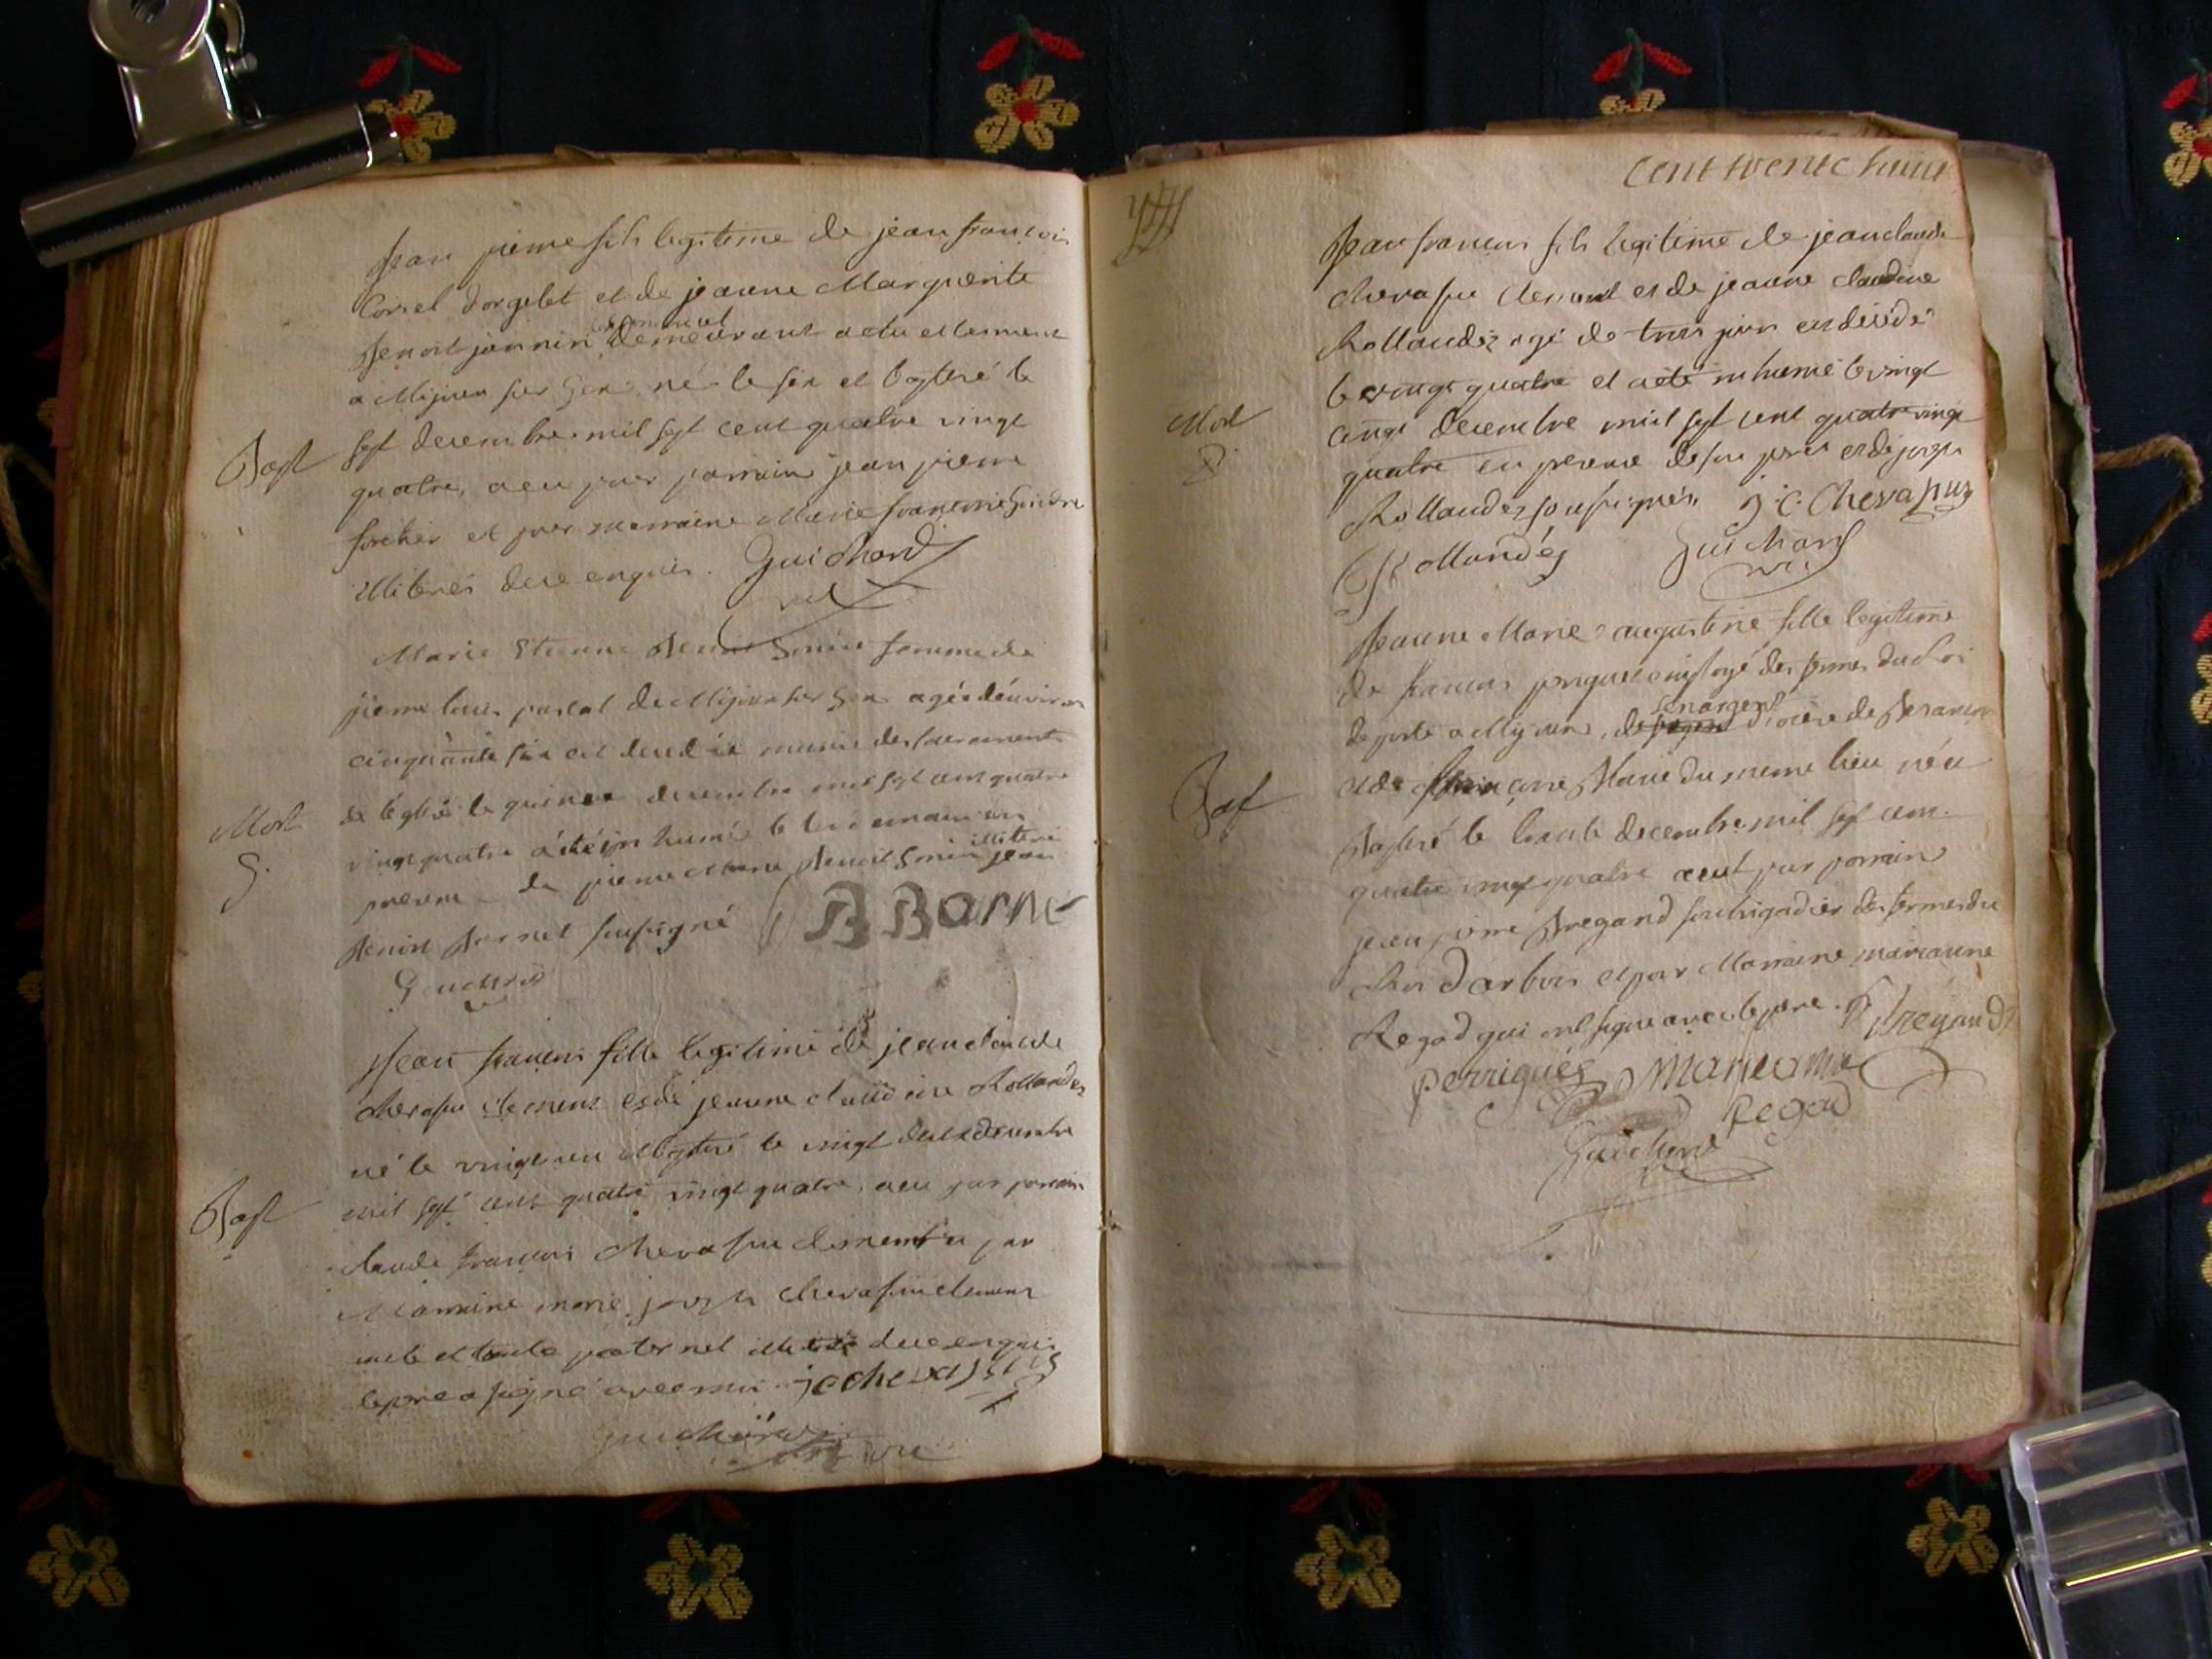 Jean pierre fils legitime de jean francois
Corsel d'orgelet et de jeanne Marguerite
Benoit jannin demeurant actuellement
a Mijoux sur Gex, né le six et baptisé le
Bapt
sept decembre mil sept cent quatre vingt
quatre, a eu pour parrain jean pierre
forestier et pour marraine Marie francoise
illiterés de ce enquis. Guichard
vic
Marie Etienne Benoit Gonin femme de
pierre louis pascal de Mijoux sur Gex agée d'environ
cinquante six est decedée munie des sacrements
de l'eglise le quinze decembre mil sept cent quatre
Mort
vingt quatre a été inhumée le lendemain en
G.
illiteré
presence de pierre Marie Benoit Gonin jean
Benoit Barnet soussigné B Barne
Guichard
Jean francois fille legitime de jean claude
Chevassu clement et de jeanne claudine Rollandez
né le vingt un et baptisé le vingt deux decembre
Bapt
mil sept cent quatre vingt quatre, a eu pour parrain
claude francois Chevassu clement et par
Marraine marie joseph Chevassu clement
oncle et tante paternel illiterés de ce enquis
le pere a signé avec moi jc chevassus
Guichard
vic
cent trente huit
Jean francois fils legitime de jean claude
chevassu clement et de jeanne claudine
Rollandez agé de trois jours est decédé
le vingt quatre et a eté inhumé le vingt
Mort
cinq decembre mil sept cent quatre vingt
quatre en presence de son pere et de joseph
Rollandez soussignés. J. C. Chevassus
J Rollandéz Guichard
vic
Jeanne Marie augustine fille legitime
de francois perrigués employé des fermes du Roi
de poste a Mijoux, de diocese de Besancon
et de francoise Marie du meme lieu née
Bapt
Baptisé le trente decembre mil sept cent
quatre vingt quatre a eut pour parrain
jean pierre Bregand soubrigadier des fermes du
Roi d'arbois et par Marraine marianne
Regad qui ont signé avec le pere. Bregand
perrigués Marieanne
Regad
Guichard
vic